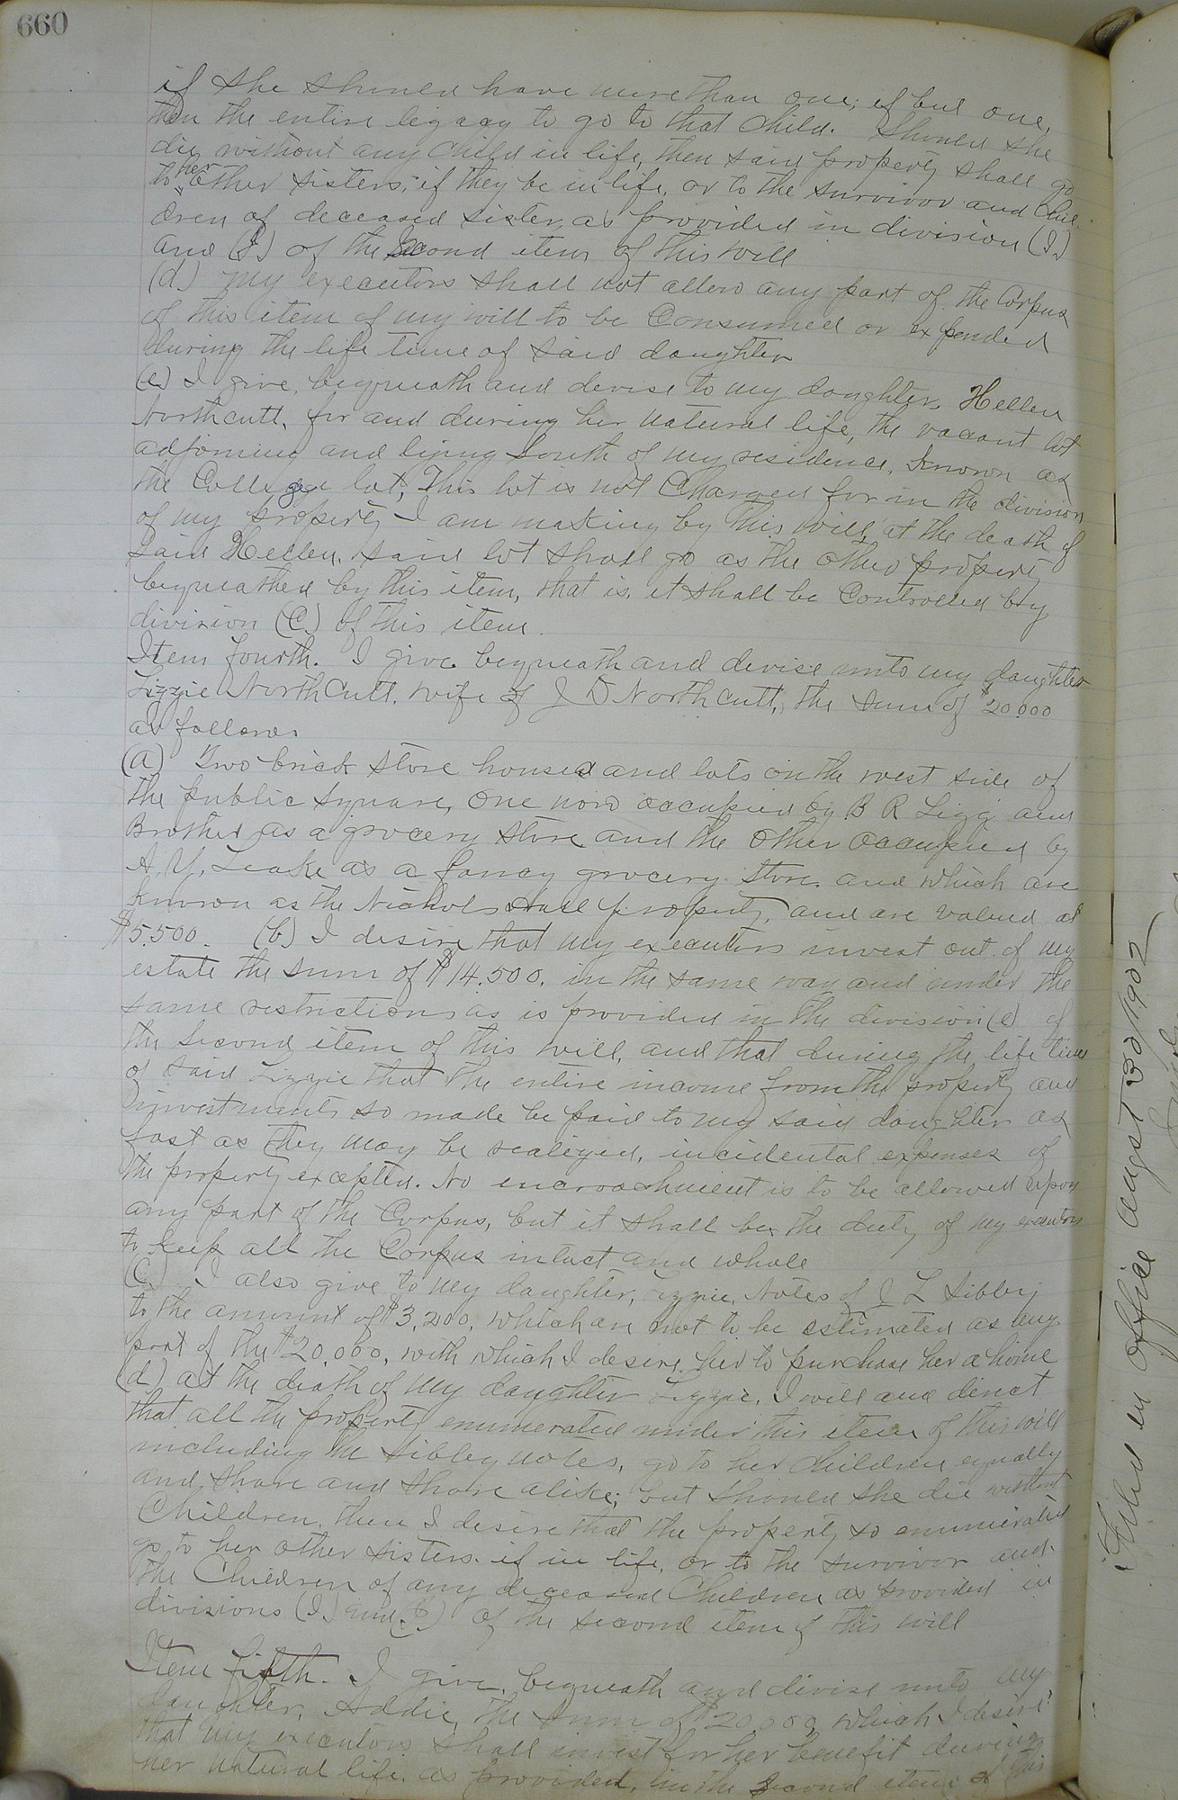 660
if she should have more than one; if but one,
then the entire legacy to go to that child. Should she
die without any child in life, then said property shall go
to her other sisters; if they be in life, or to the survivor and chil-
dren of deceased sister, as provided in division (I.)
and (J) of the second item of this will
(d.) my executors shall not allow any part of the Corpus
of this item of my will to be Consumed or expended
during the life time of said daughter
(e) I give, bequeath and devise to my daughter, Hellen
Northcutt, for and during her natural life, the vacant lot
adjoining and lying South of my residence, known as
the College lot, This lot is not Charged for in the division
of my property I am making by this will, at the death of
said Hellen, said lot shall go as the other property
bequeathed by this item, that is, it shall be Controlled by
division (C.) of this item.
Item fourth. I give, bequeath and devise unto my daughter
Lizzie Northcutt, wife of J D Northcutt, the sum of $20.000
as follows
(a) Two brick store houses and lots on the west side of
the public square, one now occupied by B R Legg and
Brother as a grocery store and the other occupied by
A. Y. Leake as a fancy grocery store. and which are
known as the Nichols Hall property, and are valued at
$5.500. (b) I desire that my executors invest out of my
estate the sum of $14.500. in the same way and under the
same restrictions as is provided in the division (e) of
the second item of this will, and that during the life time
of said Lizzie that the entire income from the property and
investments so made be paid to my said daughter as
fast as they may be realized, incidental expenses of
the property excepted. No encroachment is to be allowed upon
any part of the Corpus, but it shall be the duty of my executors
to keep all the Corpus intact and whole
(C.) I also give to my daughter, Lizzie, Notes of J L Sibley
to the amount of $3,200, which are not to be estimated as any
part of the $20.000, with which I desire her to purchase her a home
(d) at the death of my daughter Lizzie, I will and direct
that all the property enumerated under this item of this will
including the Sibley notes, go to her children equally
and share and share alike; but should she die without
Children, then I desire that the property so enumerated
go to her other sisters. if in life, or to the survivor and
the Children of any deceased Children as provided in
divisions (I.) and (J.) of the second item of this will
Item fifth. I give, bequeath and divise unto my
daughter, Addie, the sum of $20.000, which I desire
that my executors shall invest for her benefit during
her natural life. as provided, in the second item of this
Filed in office August 30 1902